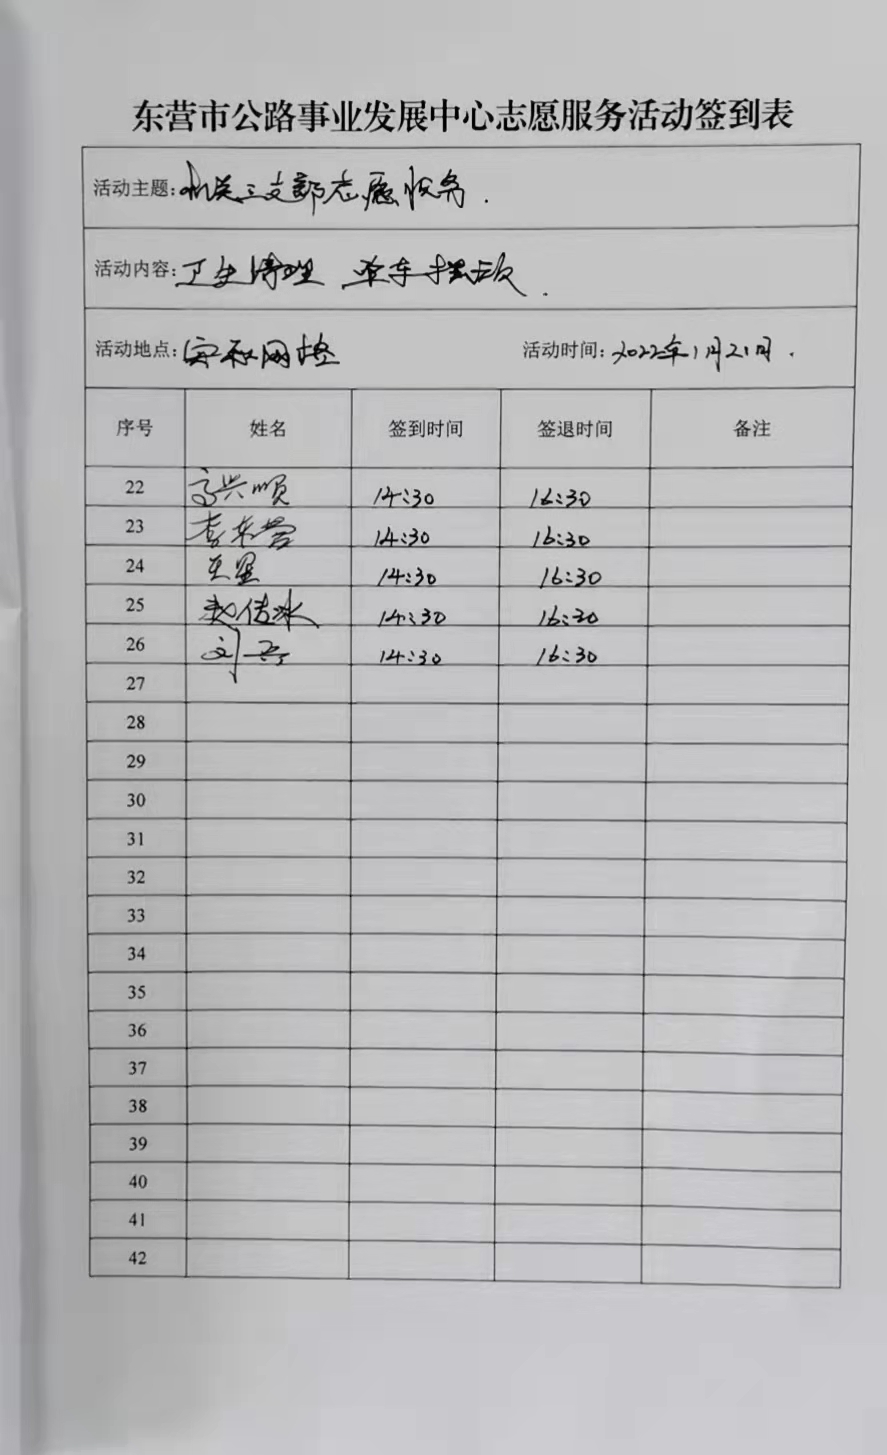 东营市公路事业发展中心志愿服务活动签到表
活动主题: 机关三支部志愿服务.
活动内容: 卫生清理 单车摆放.
活动地点: 网格 活动时间: 2022年1月21日.
序号 姓名 签到时间 签退时间 备注
22 高兴顺 14:30 16:30
23 李东营 14:30 16:30
24 王星 14:30 16:30
25 赵传冰 14:30 16:30
26 刘 14:30 16:30
27
28
29
30
31
32
33
34
35
36
37
38
39
40
41
42